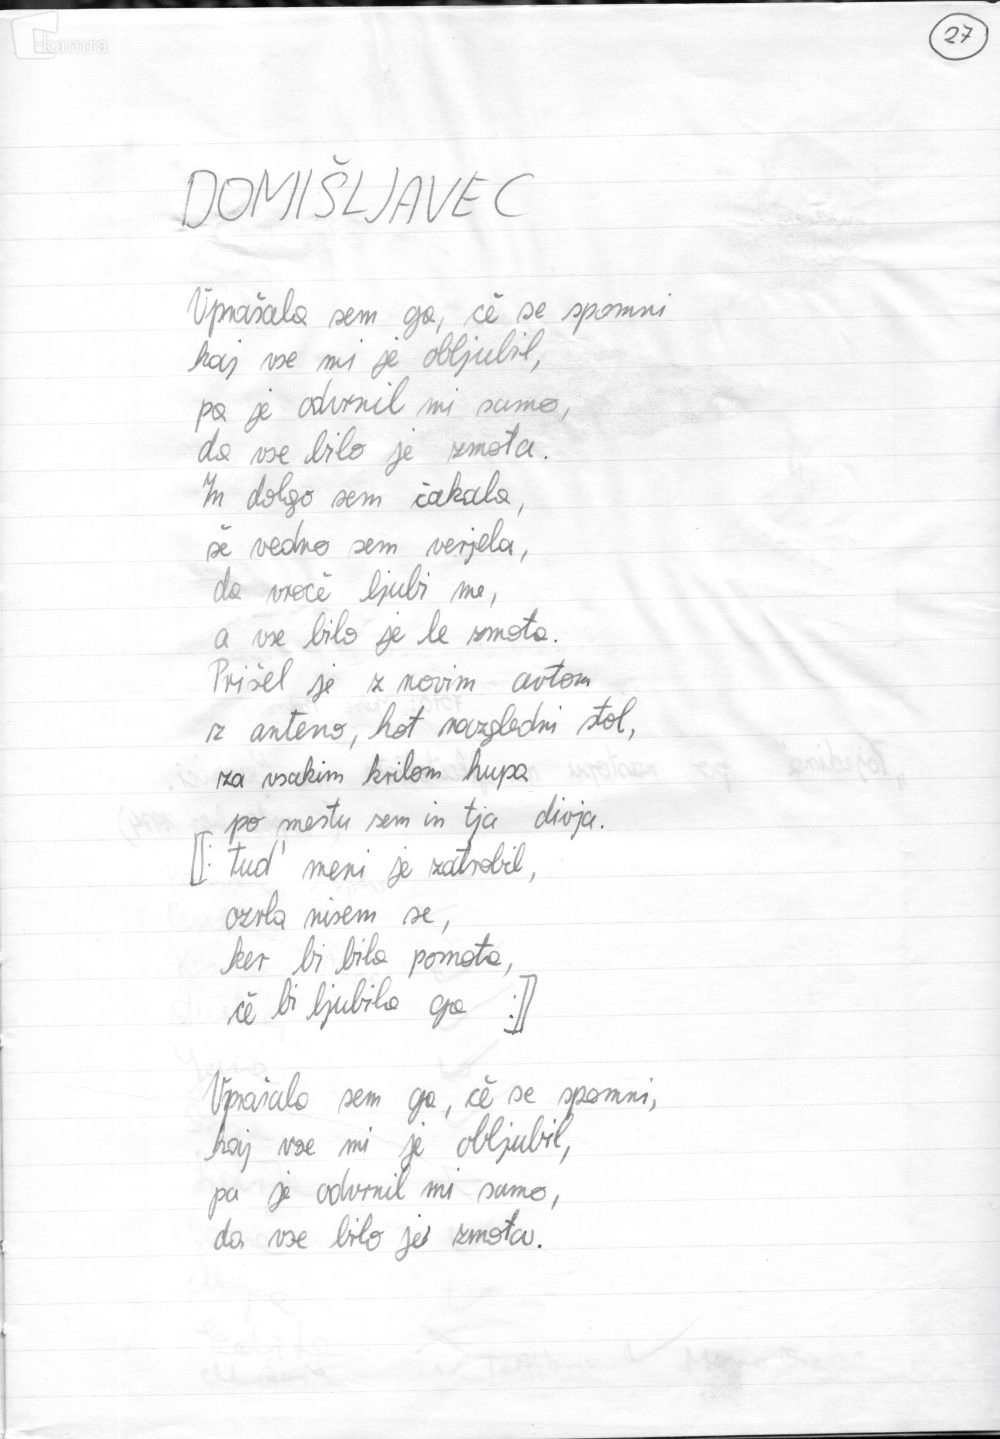 kamra
27
DOMIŠLJAVEC
Vprašala sem ga, če se spomni
kaj vse mi je obljubil,
pa je odvrnil mi samo,
da vse bilo je zmota.
In dolgo sem čakala,
še vedno sem verjela,
da vroče ljubi me,
a vse bilo je le zmota.
Prišel je z novim avtom
z anteno, kot razgledni stol,
za vsakim krilom hupa
po mestu sem in tja divja.
[: tud' meni je zatrobil,
ozrla nisem se,
ker bi bila pomota,
če bi ljubila ga :]
Vprašala sem ga, če se spomni,
kaj vse mi je obljubil,
pa je odvrnil mi samo,
da vse bilo je zmota.